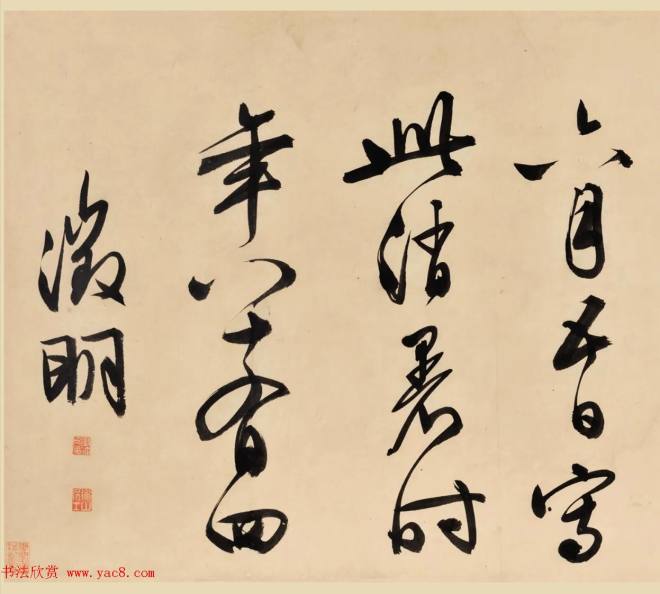 六月五日寫
此消暑时
年八十有四
徵明
书法欣赏 www.yac8.com